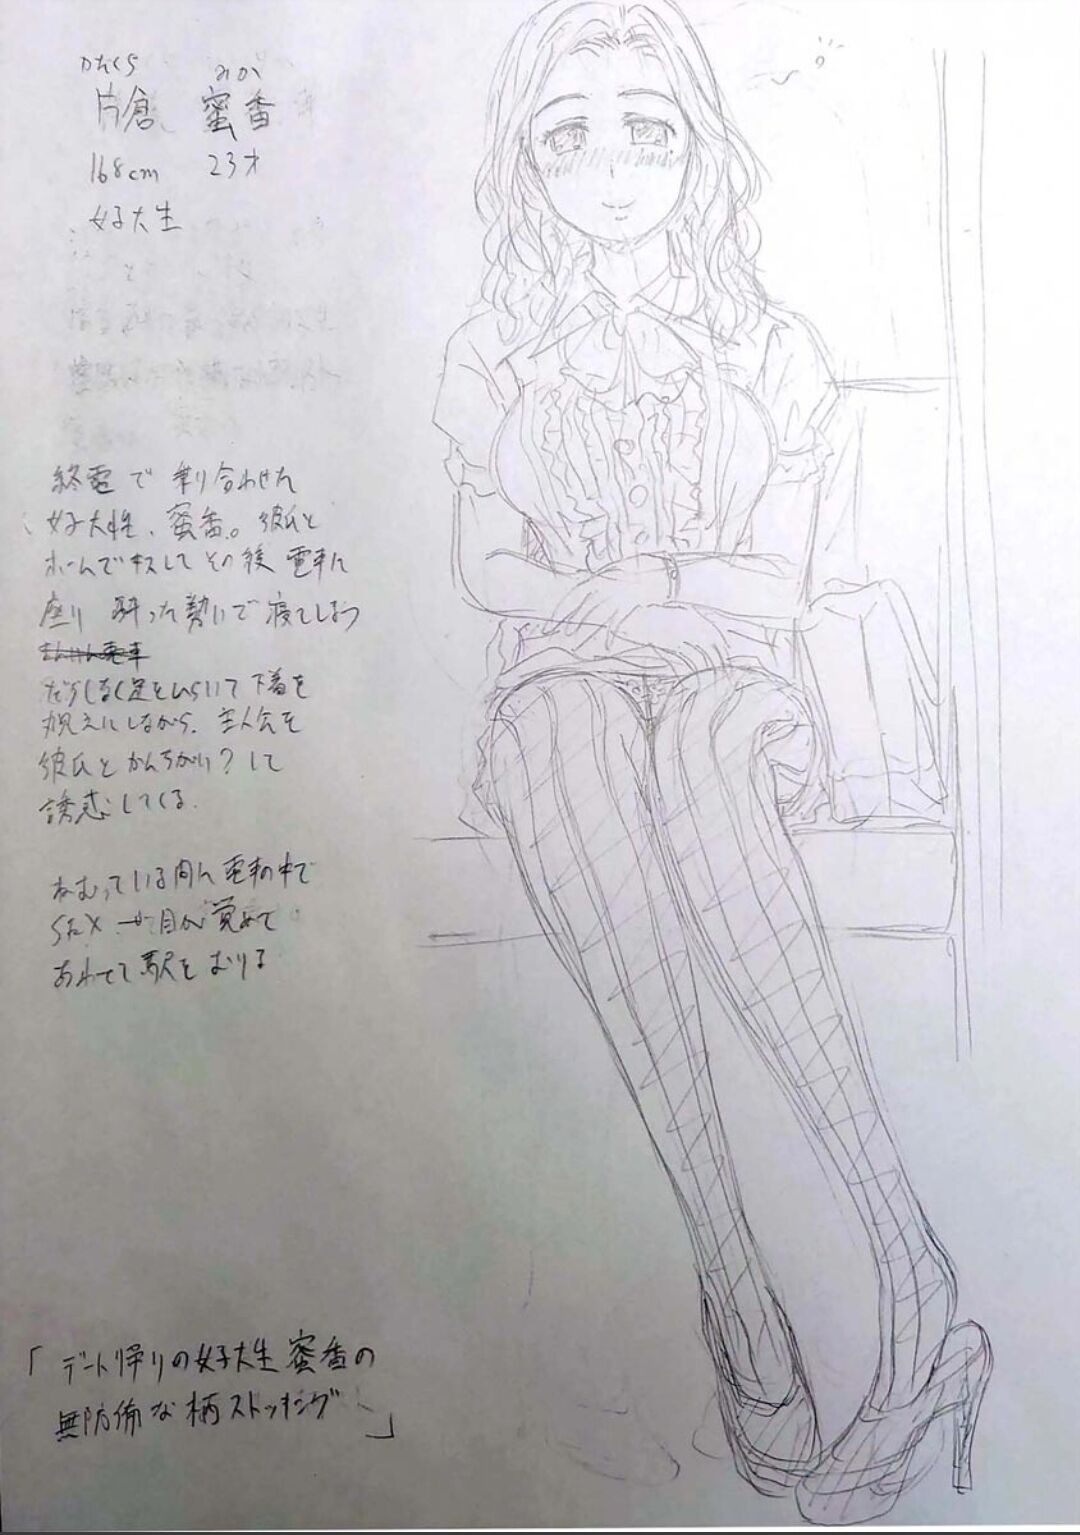 かたくら みか
片倉 蜜香
168cm 23才
女子大生
終電で乗り合わせた
女子大性、蜜香。彼氏と
ホームでキスしてその後電車に
座り 酔った勢いで寝てしまう
だらしなく足をひらいて下着を
丸見えにしながら、主人公を
彼氏とかんちがい?して
誘惑してくる.
ねむっている間に電車の中で
目が覚めて
あわてて駅をおりる
「デート帰りの女子大生蜜香の
無防備な柄ストッキング」